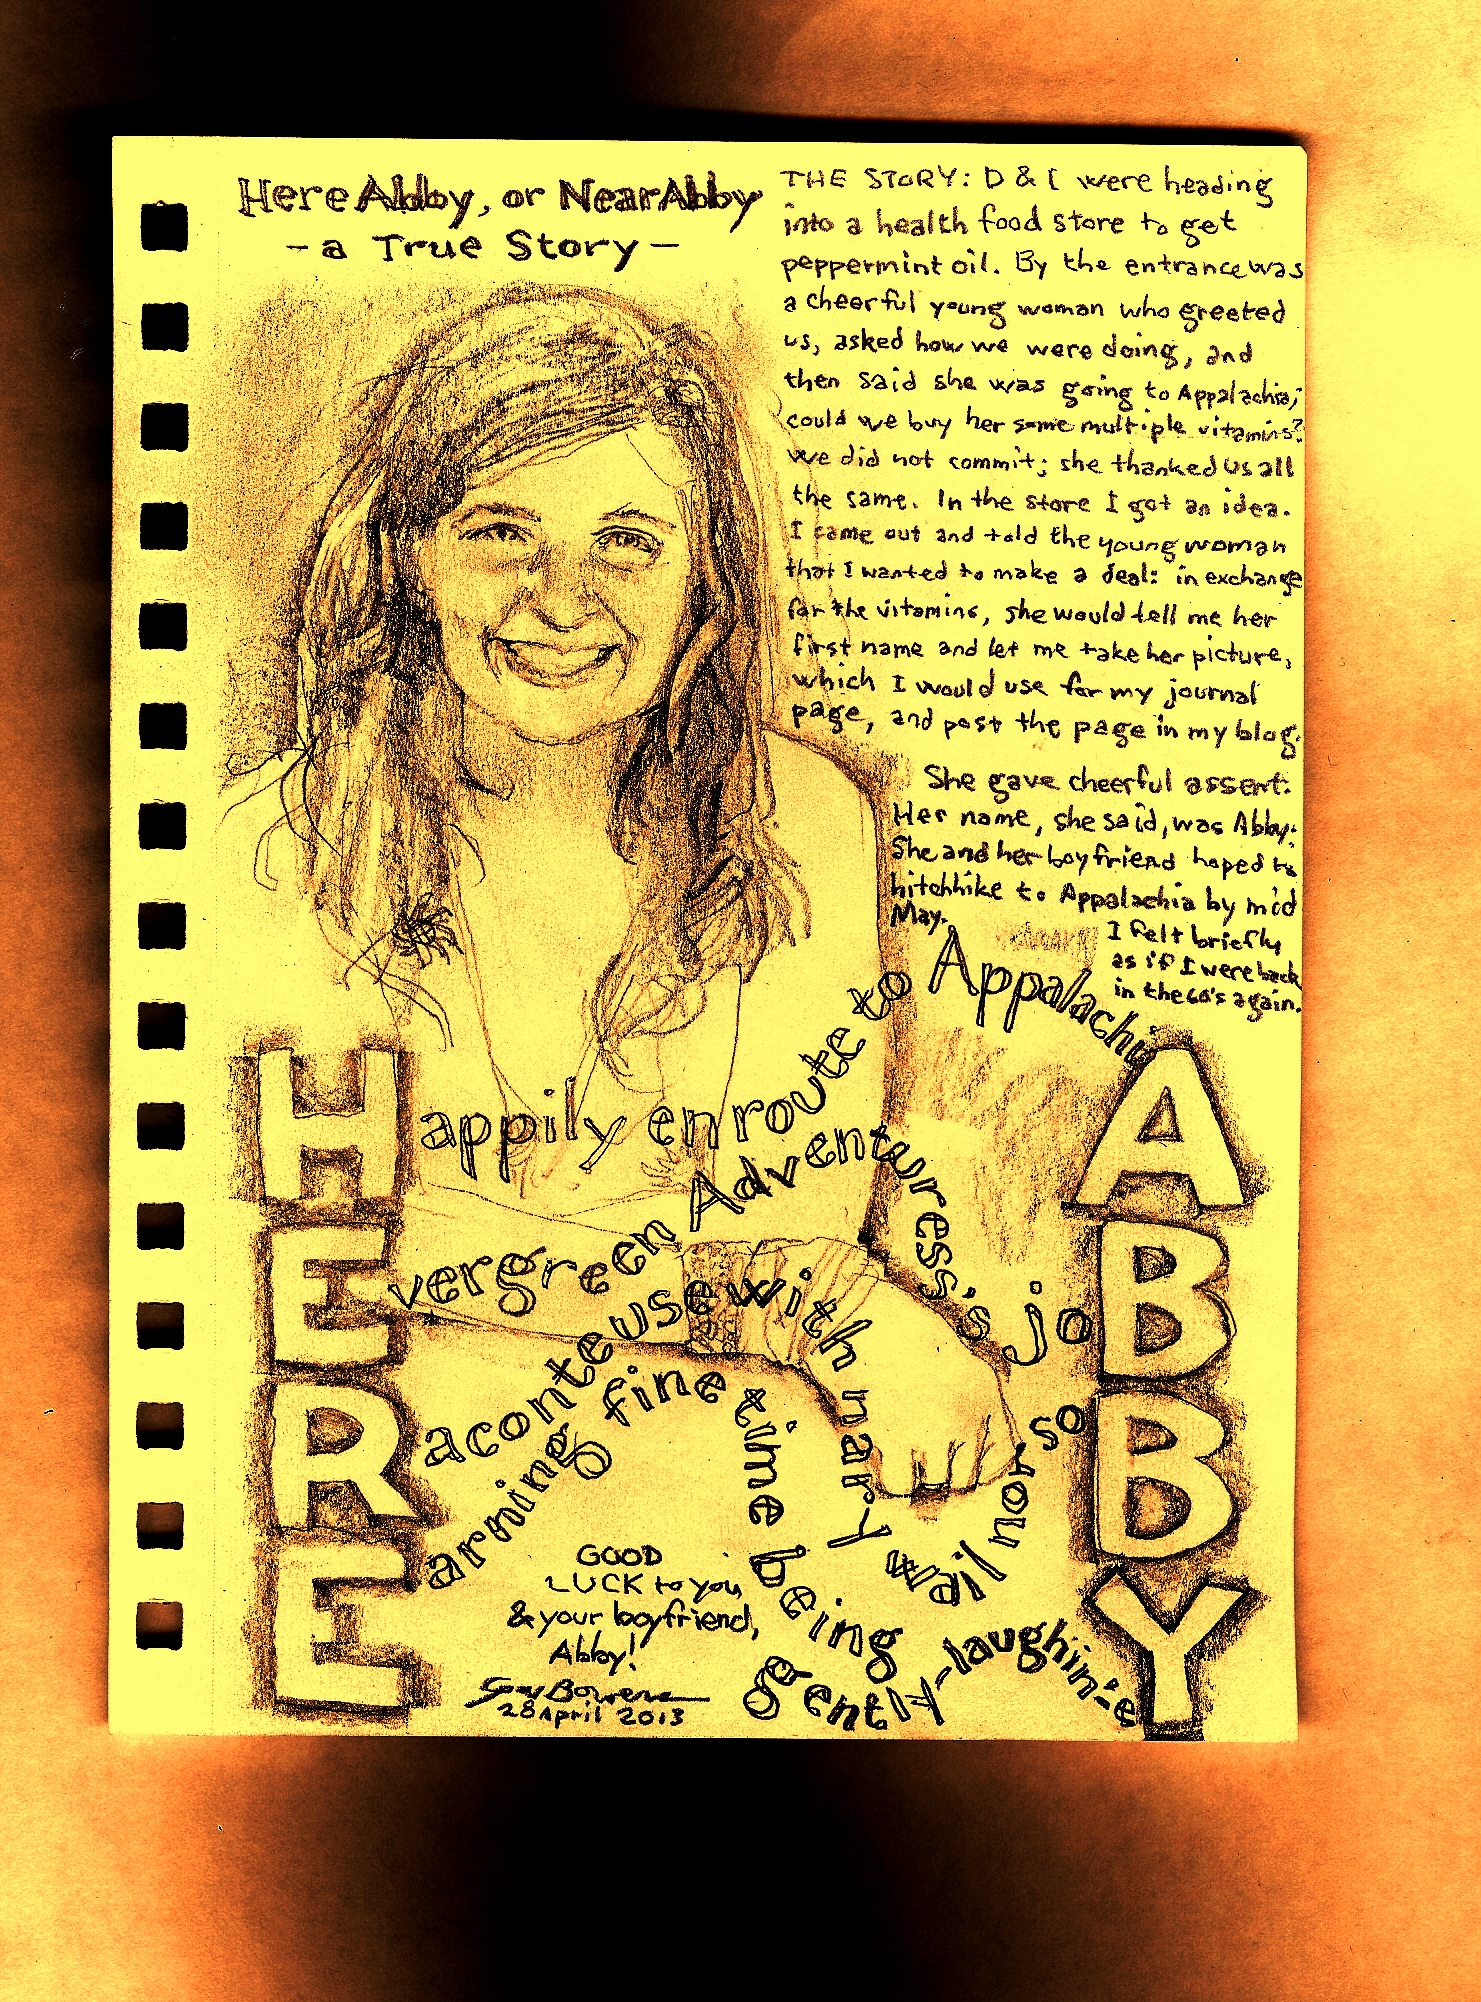 Here Abby, or NearAbby
- a True Story -
THE STORY: D & I were heading
into a health food store to get
peppermint oil. By the entrance was
a cheerful young woman who greeted
us, asked how we were doing, and
then said she was going to Appalachia;
could we buy her some multiple vitamins?
We did not commit; she thanked us all
the same. In the store I got an idea.
I came out and told the young woman
that I wanted to make a deal: in exchange
for the vitamins, she would tell me her
first name and let me take her picture,
which I would use for my journal
page, and post the page in my blog.
She gave cheerful assent.
Her name, she said, was Abby.
She and her boyfriend hoped to
hitchhike to Appalachia by mid
May.
I felt briefly
as if I were back
in the 60's again.
Happily enroute to AppalachiA
Evergreen Adventuress's joB
Raconteuse with nar-y wail nor soB
Earning fine time being gently-laughin-eY
GOOD
LUCK to you
& your boyfriend,
Abby!
28 April 2013